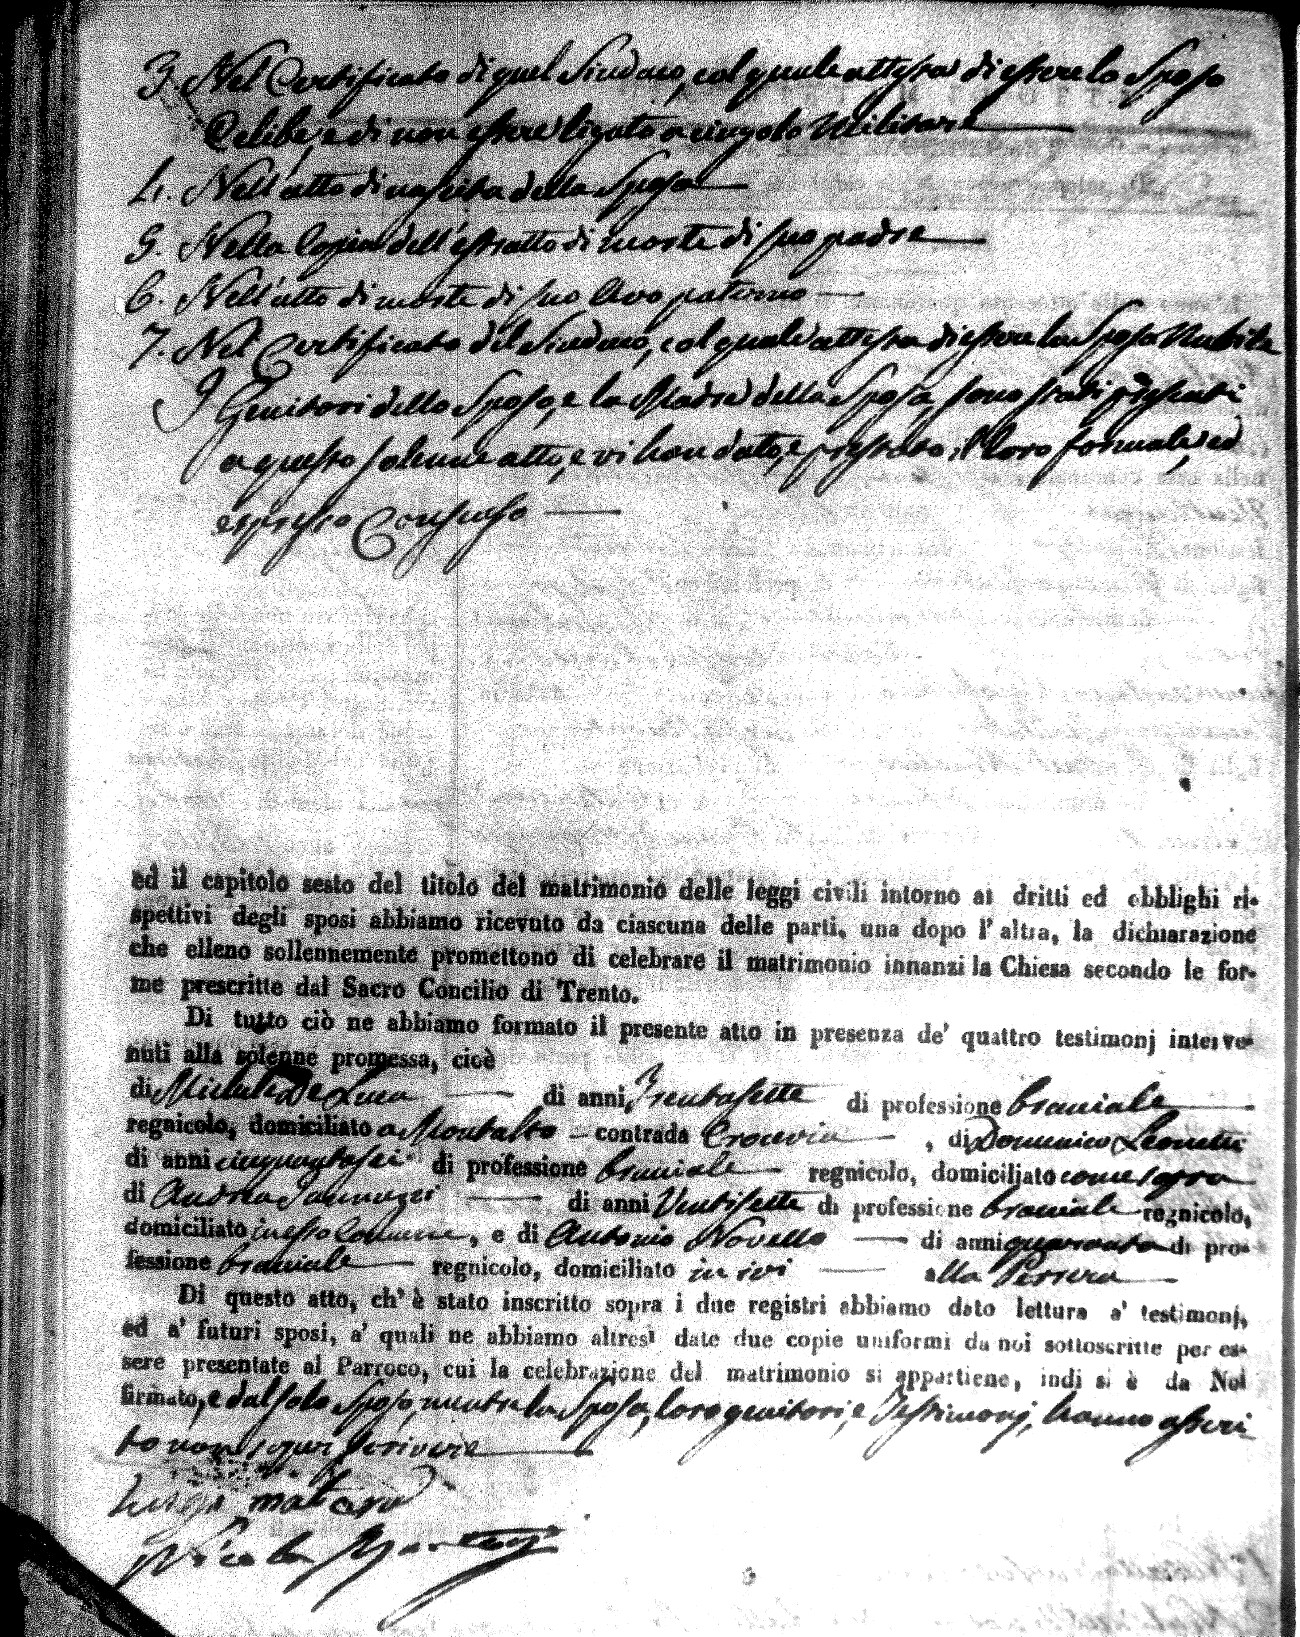 3. Nel Certificato di quel Sindaco, col quale attesta di essere lo Sposo
Celibe, e di non essere ligato a cingolo Militare
4. Nell'atto di nascita della Sposa
5. Nella Copia dell'estratto di morte di suo padre
6. Nell'atto di morte di suo Avo paterno
7. Nel Certificato del Sindaco, col quale attesta di essere la Sposa Nubile
I Genitori dello Sposo, e la Madre della Sposa, sono stati presenti
a questo solenne atto, e vi han dato, e prestato il loro formale, ed
espresso Consenso
ed il capitolo sesto del titolo del matrimonio delle leggi civili intorno ai dritti ed obblighi ri-
spettivi degli sposi abbiamo ricevuto da ciascuna delle parti, una dopo l'altra, la dichiarazione
che elleno sollennemente promettono di celebrare il matrimonio innanzi la Chiesa secondo le for-
me prescritte dal Sacro Concilio di Trento.
Di tutto ciò ne abbiamo formato il presente atto in presenza de' quattro testimonj interve-
nuti alla solenne promessa, cioè
di Michele De Luca di anni Trentasette di professione bracciale
regnicolo, domiciliato a Montalto contrada , di Domenico Leonetti
di anni cinquantasei di professione bracciale regnicolo, domiciliato come sopra
di Andrea Iannuzzi di anni Ventisette di professione bracciale regnicolo,
domiciliato in esso Comune, e di Antonio Novello di anni quaranta di pro-
fessione bracciale regnicolo, domiciliato in ivi alla
Di questo atto, ch'è stato inscritto sopra i due registri abbiamo dato lettura a' testimonj,
ed a' futuri sposi, a' quali ne abbiamo altresì date due copie uniformi da noi sottoscritte per es-
sere presentate al Parroco, cui la celebrazione del matrimonio si appartiene, indi si è da Noi
firmato, e dal solo Sposo, mentre la Sposa, loro genitori, e Testimonj, hanno asseri
to non saper scrivere
Luigi
Nicola